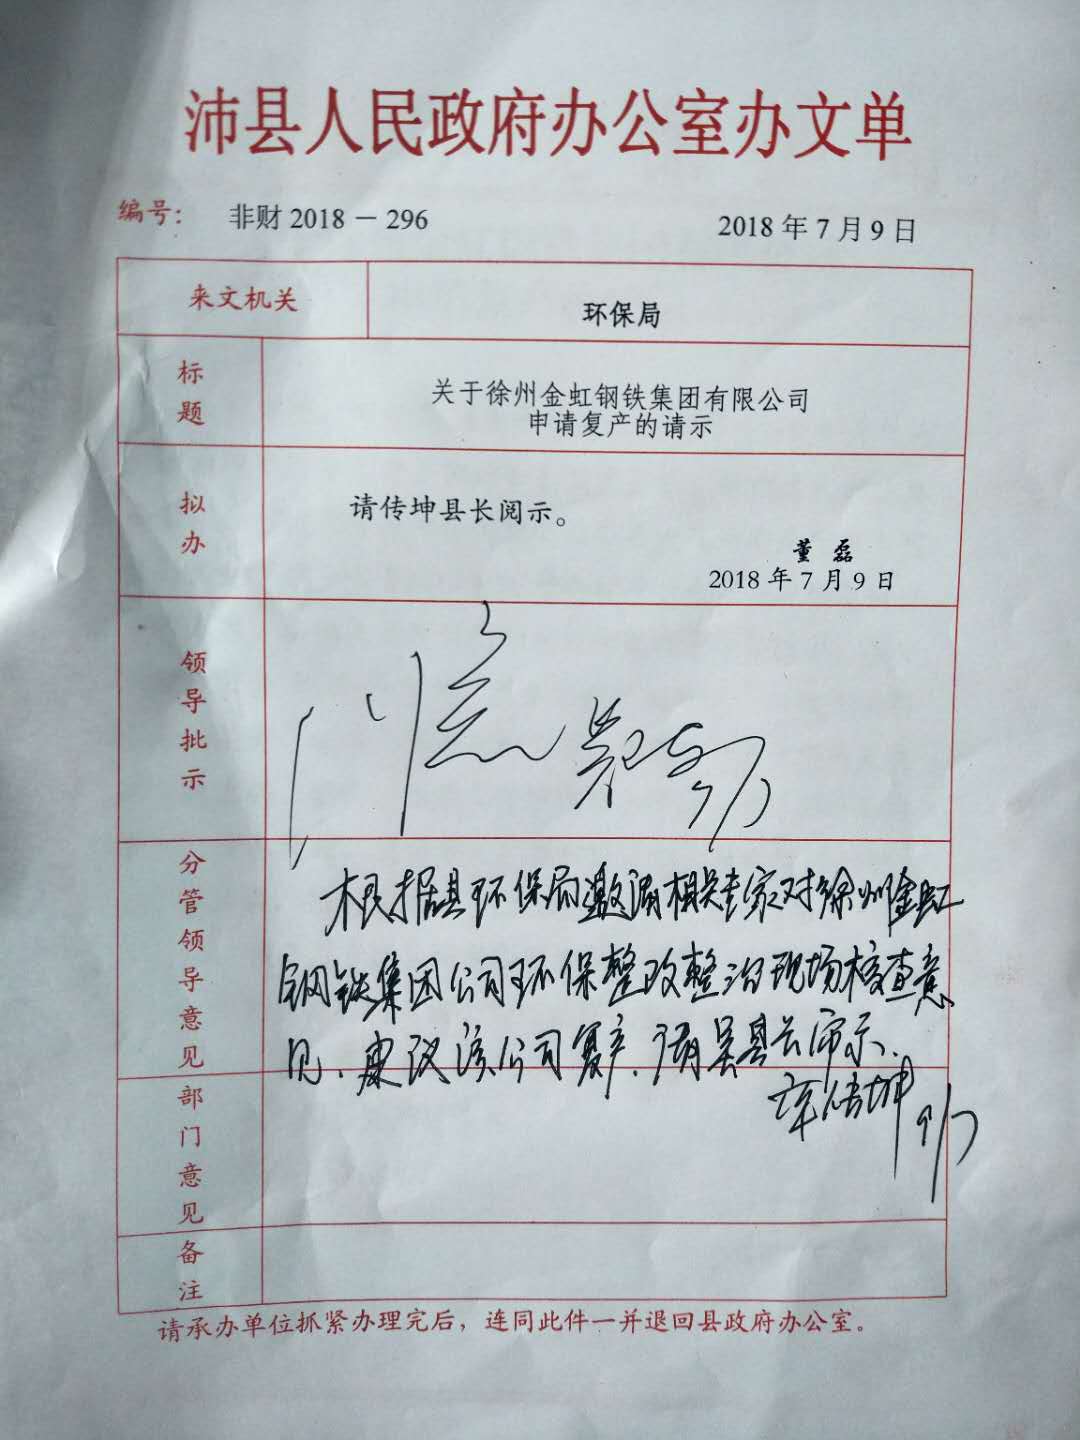 沛县人民政府办公室办文单
编号： 非财 2018－296 2018 年 7 月 9 日
来文机关 环保局
标题 关于徐州金虹钢铁集团有限公司
申请复产的请示
拟办 请传坤县长阅示。
董 磊
2018 年 7 月 9 日
领导批示
分管领导意见 根据县环保局邀请相关专家对徐州金虹
钢铁集团公司环保整改整治现场核查意
见，建议该公司复产，请吴县长审示。
传坤 9/7
部门意见
备注
请承办单位抓紧办理完后，连同此件一并退回县政府办公室。